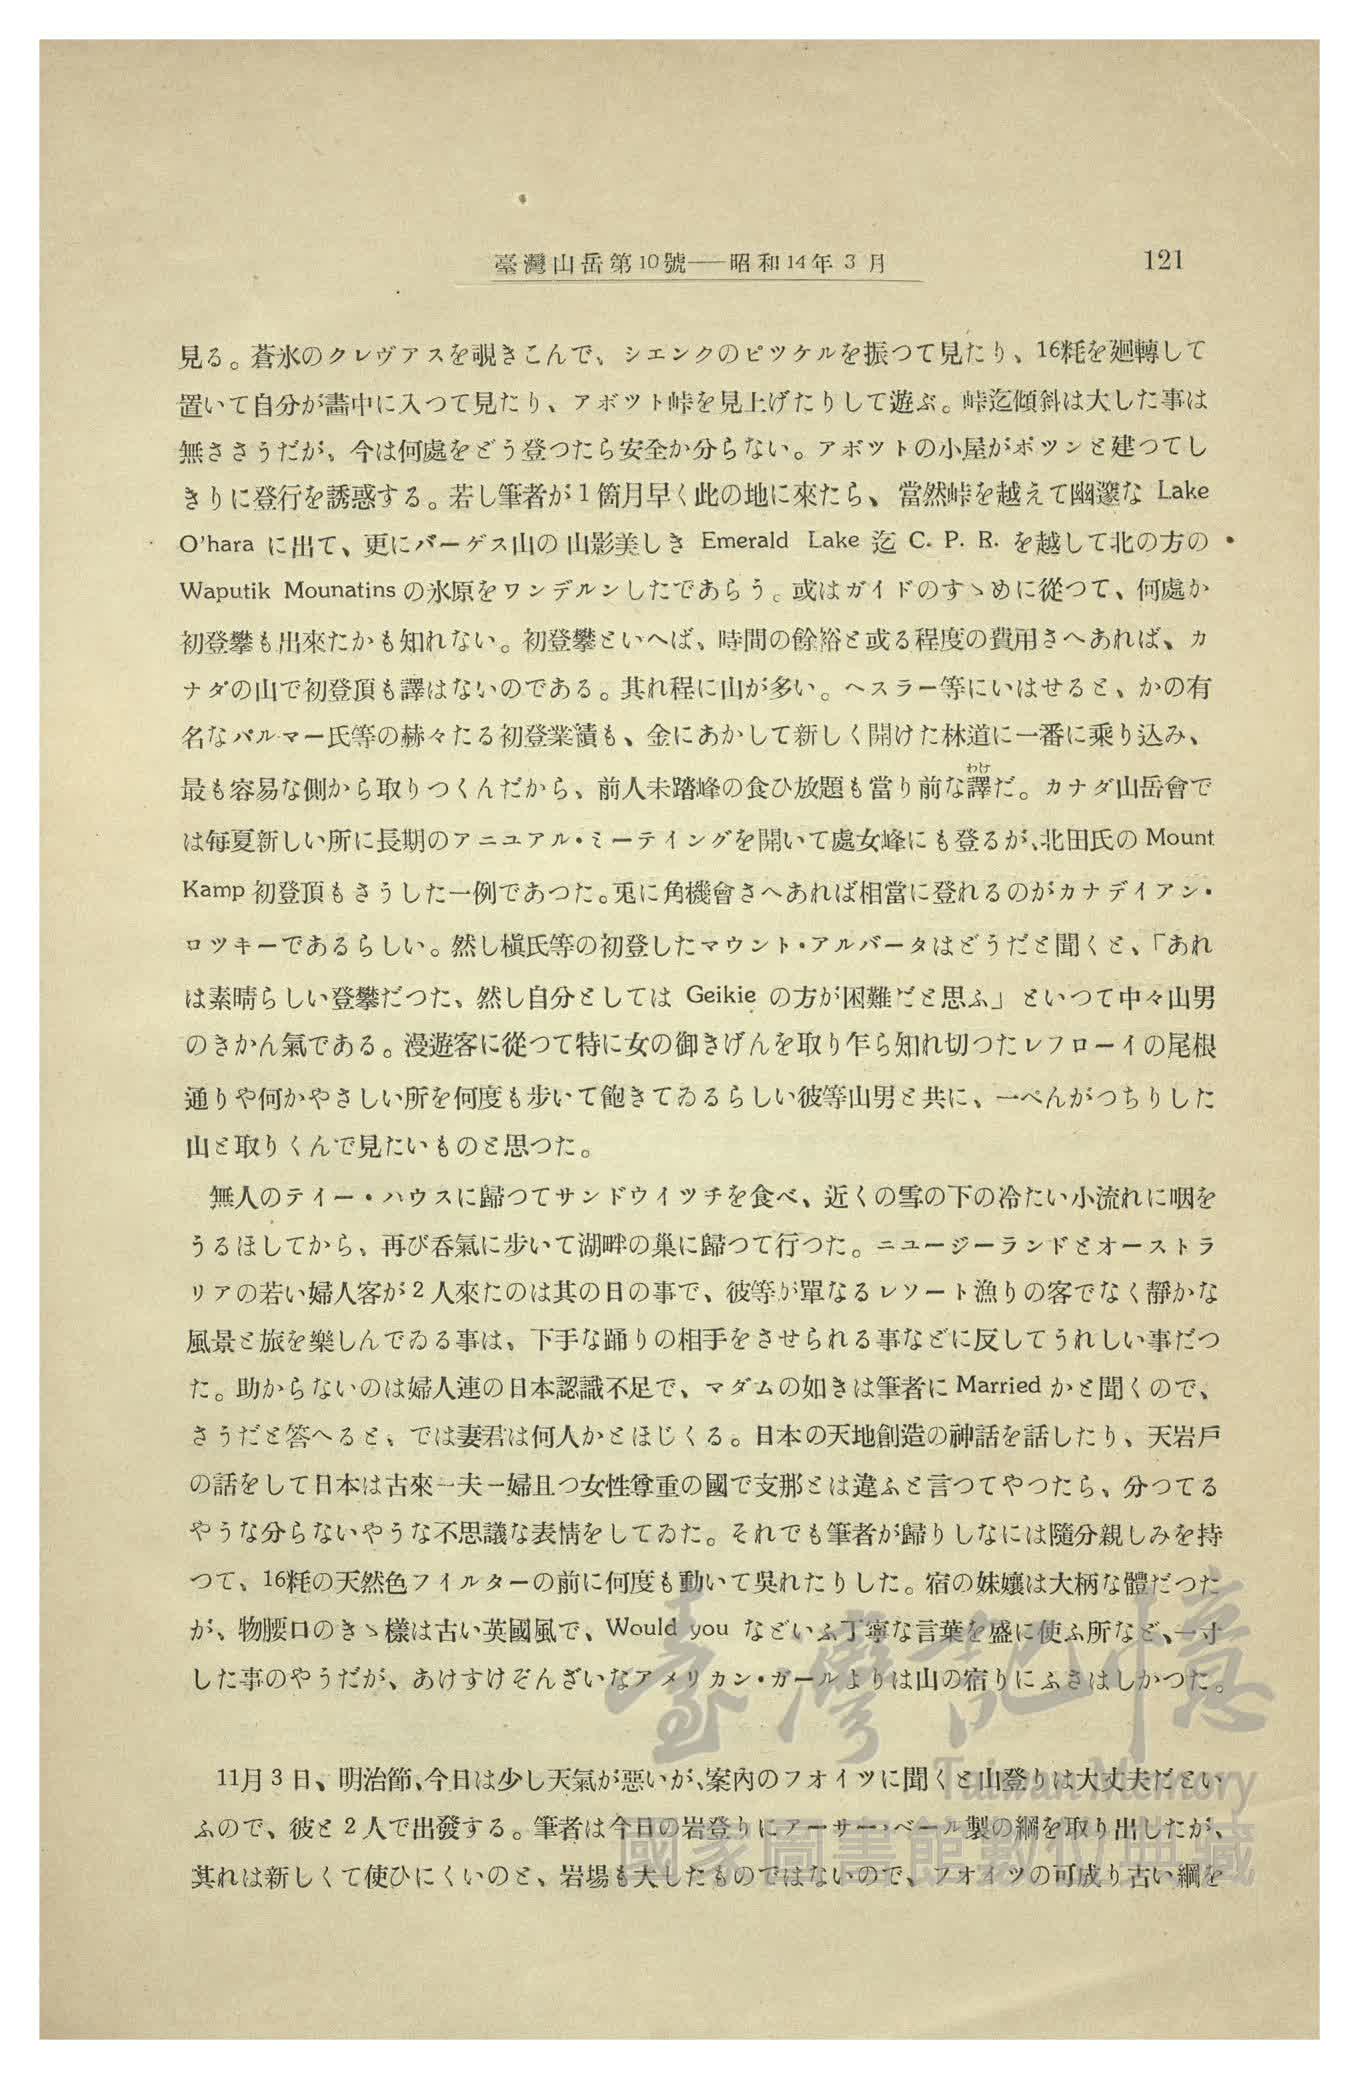 臺灣山岳第10號——昭和14年3月
121
見る。蒼氷のクレヴアスを覗きこんで、シエンクのピツケルを振つて見たり、16粍を廻轉して
置いて自分が畵中に入つて見たり、アボツト峠を見上げたりして遊ぶ。峠迄傾斜は大した事は
無ささうだが、今は何處をどう登つたら安全か分らない。アボツトの小屋がポツンと建つてし
きりに登行を誘惑する。若し筆者が1箇月早く此の地に來たら、當然峠を越えて幽邃な Lake
O'hara に出て、更にバーゲス山の山影美しき Emerald Lake 迄 C. P. R. を越して北の方の
Waputik Mounatins の氷原をワンデルンしたであらう。或はガイドのすゝめに從つて、何處か
初登攀も出來たかも知れない。初登攀といへば、時間の餘裕と或る程度の費用さへあれば、カ
ナダの山で初登頂も譯はないのである。其れ程に山が多い。ヘスラー等にいはせると、かの有
名なパルマー氏等の赫々たる初登業績も、金にあかして新しく開けた林道に一番に乘り込み、
最も容易な側から取りつくんだから、前人未踏峰の食ひ放題も當り前な譯(わけ)だ。カナダ山岳會で
は每夏新しい所に長期のアニユアル・ミーテイングを開いて處女峰にも登るが、北田氏の Mount
Kamp 初登頂もさうした一例であつた。兎に角機會さへあれば相當に登れるのがカナデイアン・
ロツキーであるらしい。然し槇氏等の初登したマウント・アルバータはどうだと聞くと、「あれ
は素晴らしい登攀だつた、然し自分としては Geikie の方が困難だと思ふ」といつて中々山男
のきかん氣である。漫遊客に從つて特に女の御きげんを取り乍ら知れ切つたレフローイの尾根
通りや何かやさしい所を何度も步いて飽きてゐるらしい彼等山男と共に、一ぺんがつちりした
山と取りくんで見たいものと思つた。
無人のテイー・ハウスに歸つてサンドウイツチを食べ、近くの雪の下の冷たい小流れに咽を
うるほしてから、再び呑氣に步いて湖畔の巢に歸つて行つた。ニユージーランドとオーストラ
リアの若い婦人客が2人來たのは其の日の事で、彼等が單なるレソート漁りの客でなく靜かな
風景と旅を樂しんでゐる事は、下手な踊りの相手をさせられる事などに反してうれしい事だつ
た。助からないのは婦人連の日本認識不足で、マダムの如きは筆者に Married かと聞くので、
さうだと答へると、では妻君は何人かとほじくる。日本の天地創造の神話を話したり、天岩戶
の話をして日本は古來一夫一婦且つ女性尊重の國で支那とは違ふと言つてやつたら、分つてる
やうな分らないやうな不思議な表情をしてゐた。それでも筆者が歸りしなには隨分親しみを持
つて、16粍の天然色フイルターの前に何度も動いて吳れたりした。宿の妹孃は大柄な體だつた
が、物腰口のきゝ樣は古い英國風で、Would you などいふ丁寧な言葉を盛に使ふ所など、一寸
した事のやうだが、あけすけぞんざいなアメリカン・ガールよりは山の宿りにふさはしかつた。
11月3日、明治節、今日は少し天氣が惡いが、案內のフオイツに聞くと山登りは大丈夫だとい
ふので、彼と2人で出發する。筆者は今日の岩登りにアーサー・ベール製の綱を取り出したが、
其れは新しくて使ひにくいのと、岩場も大したものではないので、フオイツの可成り古い綱を
臺灣記憶
Taiwan Memory
國家圖書館數位典藏